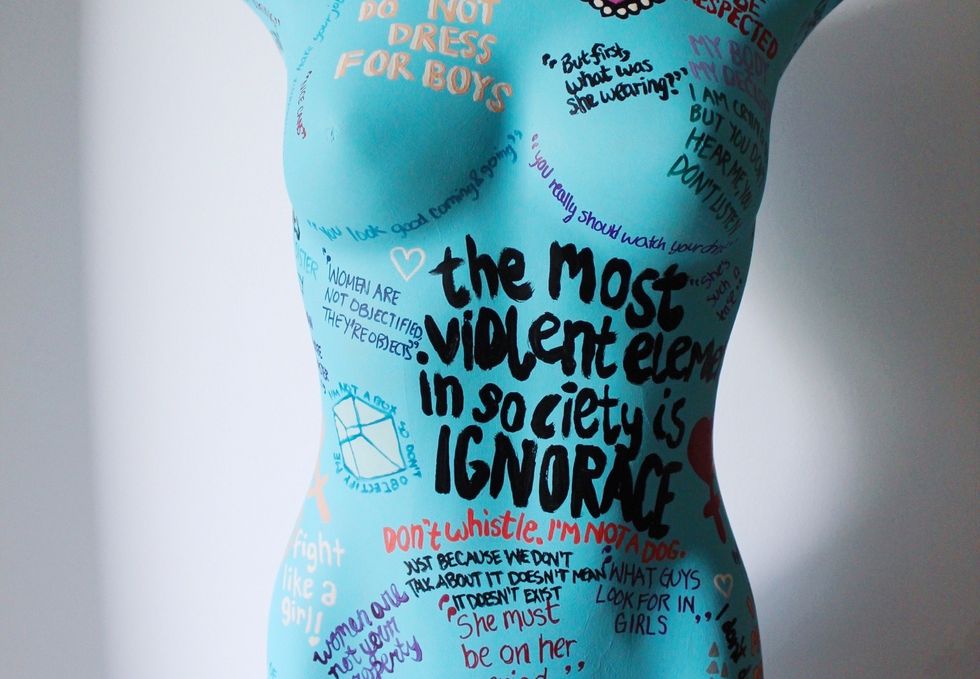 DO NOT
DRESS
FOR BOYS
RESPECTED
MY BODY
MY
"But first,
what was
she wearing?"
I AM
BUT YOU DON'T
HEAR ME, YOU
DON'T LISTEN
"you look good coming & going"
"you really should watch your
"she's
such a
"WOMEN ARE
NOT OBJECTIFIED,
THEY'RE OBJECTS"
the most
violent eleme
in society is
IGNORACE
I'M NOT A BOX
SO DON'T
OBJECTIFY ME
DON'T whistle. I'M NOT A DOG.
fight
like a
girl!
JUST BECAUSE WE DON'T
TALK ABOUT IT DOESN'T MEAN
IT DOESN'T EXIST
"WHAT GUYS
LOOK FOR IN
GIRLS"
women are
not your
property
"She must
be on her